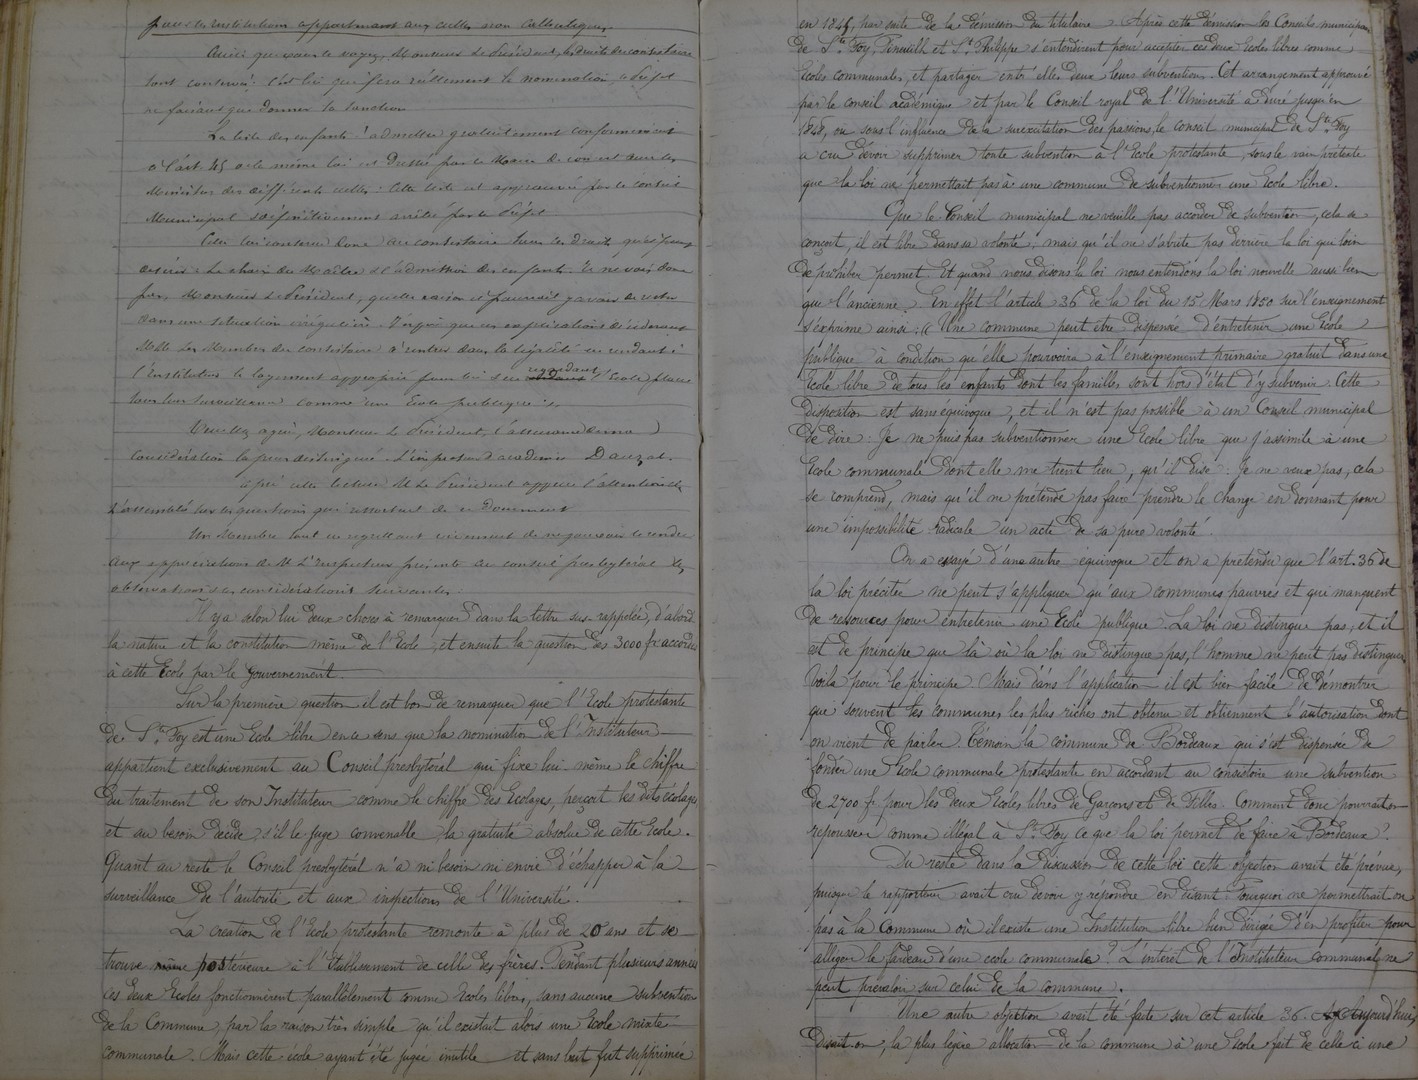 pour les institutions appartenant aux cultes non catholiques.
Ainsi que vous le voyez, Monsieur le Président, les droits du consistoire
sont conservés. C'est lui qui fera réellement la nomination, le Préfet
ne faisant que donner la sanction.
La liste des enfants à admettre gratuitement conformément
à l'art. 45 de la même loi est dressée par le Maire de concert avec les
Ministres des différents cultes. Cette liste est approuvée par le conseil
Municipal et définitivement arrêtée par le Préfet.
donc au consistoire tous les droits qu'il peut
désirer. Le choix du Maître et l'admission des enfants. Je ne vois donc
pas, Monsieur le Président, quelle raison il pourrait y avoir de rester
dans une situation irrégulière. J'espère que ces explications décideront
MM. les Membres du consistoire à rentrer dans la légalité en rendant à
l'Instituteur le logement approprié pour lui et en regardant l'Ecole placée
sous leur surveillance comme une Ecole publique.
Veuillez agréer, Monsieur le Président, l'assurance de ma
considération la plus distinguée. L'inspecteur d'académie Dauzat.
Après cette lecture M. Le Président appelle l'attention de
l'assemblée sur les questions qui ressortent de ce document.
Un Membre tout en regrettant vivement de ne pouvoir se rendre
aux appréciations de M. L'Inspecteur présente au conseil presbytéral les
observations et considérations suivantes.
Il y a selon lui deux choses à remarquer dans la lettre sus-rappelée, d'abord
la nature et la constitution même de l'Ecole, et ensuite la question des 3000 fr. accordés
à cette Ecole par le Gouvernement.
Sur la première question il est bon de remarquer que l'Ecole protestante
de Ste Foy est une Ecole libre en ce sens que la nomination de l'Instituteur
appartient exclusivement au Conseil presbytéral qui fixe lui-même le chiffre
du traitement de son Instituteur comme le chiffre des Ecolages, perçoit les dits écolages
et au besoin décide, s'il le juge convenable, la gratuité absolue de cette Ecole.
Quant au reste le Conseil presbytéral n'a ni besoin ni envie d'échapper à la
surveillance de l'autorité et aux inspections de l'Université.
La création de l'Ecole protestante remonte à plus de 20 ans et se
trouve même postérieure à l'Etablissement de celle des frères. Pendant plusieurs années
ces deux Ecoles fonctionnèrent parallèlement comme Ecoles libres, sans aucune subvention
de la Commune, par la raison très simple qu'il existait alors une Ecole mixte
communale. Mais cette école ayant été jugée inutile et sans but fut supprimée
en 1845, par suite de la démission du titulaire. Après cette démission les Conseils municipaux
de Ste Foy, Pineuilh et St Philippe s'entendirent pour accepter ces deux Ecoles libres comme
Ecoles communales, et partager entr'elles deux leurs subventions. Cet arrangement approuvé
par le conseil académique et par le Conseil royal de l'Université a duré jusqu'en
1848, où sous l'influence de la surexcitation des passions, le conseil municipal de Ste Foy
a cru devoir supprimer toute subvention à l'Ecole protestante, sous le vain prétexte
que la loi ne permettait pas à une commune de subventionner une Ecole libre.
Que le Conseil municipal ne veuille pas accorder de subvention, cela se
conçoit, il est libre dans sa volonté; mais qu'il ne s'abrite pas derrière la loi qui loin
de prohiber permet. Et quand nous disons la loi nous entendons la loi nouvelle aussi bien
que l'ancienne. En effet l'article 36 de la loi du 15 Mars 1850 sur l'enseignement
s'exprime ainsi: « Une commune peut être dispensée d'entretenir une Ecole
publique à condition qu'elle pourvoira à l'enseignement primaire gratuit dans une
Ecole libre de tous les enfants dont les familles sont hors d'état d'y subvenir. Cette
disposition est sans équivoque, et il n'est pas possible à un Conseil municipal
de dire: Je ne puis pas subventionner une Ecole libre que j'assimile à une
Ecole communale dont elle me tient lieu, qu'il dise: Je ne veux pas, cela
se comprend, mais qu'il ne prétende pas faire prendre le change en donnant pour
une impossibilité radicale un acte de sa pure volonté.
On a essayé d'une autre équivoque et on a prétendu que l'art. 36 de
la loi précitée ne peut s'appliquer qu'aux communes pauvres et qui manquent
de ressources pour entretenir une Ecole publique. La loi ne distingue pas, et il
est de principe que là où la loi ne distingue pas, l'homme ne peut pas distinguer.
Voilà pour le principe. Mais dans l'application il est bien facile de démontrer
que souvent les communes les plus riches ont obtenu et obtiennent l'autorisation dont
on vient de parler. Témoin la commune de Bordeaux qui s'est dispensée de
fonder une Ecole communale protestante en accordant au consistoire une subvention
de 2700 fr. pour les deux Ecoles libres de Garçons et de Filles. Comment donc pourrait-on
repousser comme illégal à Ste Foy ce que la loi permet de faire à Bordeaux?
Du reste dans la discussion de cette loi cette objection avait été prévue,
puisque le rapporteur avait cru devoir y répondre en disant: Pourquoi ne permettrait-on
pas à la Commune où il existe une Institution libre bien dirigée d'en profiter pour
alléger le fardeau d'une école communale? L'intérêt de l'Instituteur communal ne
peut prévaloir sur celui de la commune.
Une autre objection avait été faite sur cet article 36. Aujourd'hui,
disait-on, la plus légère allocation de la commune à une Ecole fait de celle ci une